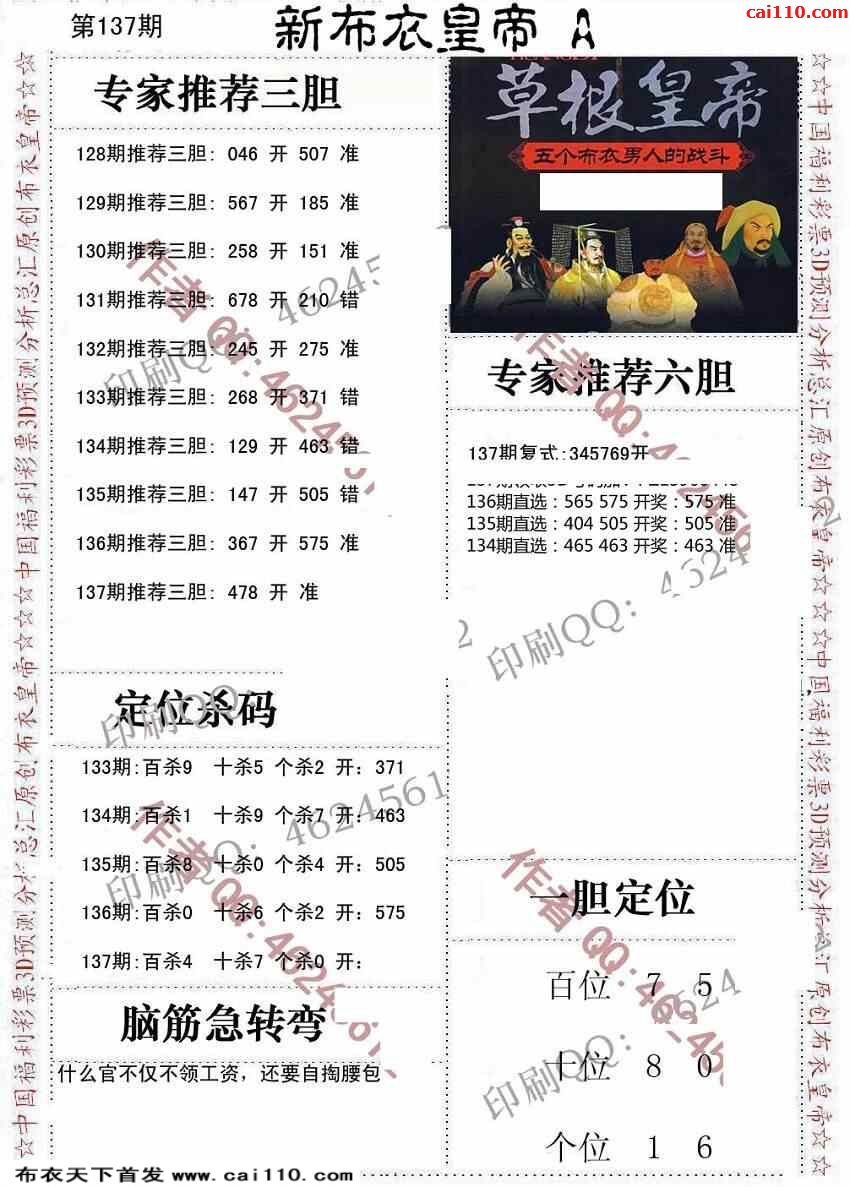 cai110.com
第137期
新布衣皇帝 A
专家推荐三胆
128期推荐三胆: 046 开 507 准
129期推荐三胆: 567 开 185 准
130期推荐三胆: 258 开 151 准
131期推荐三胆: 678 开 210 错
132期推荐三胆: 245 开 275 准
133期推荐三胆: 268 开 371 错
134期推荐三胆: 129 开 463 错
135期推荐三胆: 147 开 505 错
136期推荐三胆: 367 开 575 准
137期推荐三胆: 478 开 准
草根皇帝
五个布衣男人的战斗
专家推荐六胆
137期复式:345769开
136期直选：565 575 开奖：575 准
135期直选：404 505 开奖：505 准
134期直选：465 463 开奖：463 准
定位杀码
133期:百杀9 十杀5 个杀2 开: 371
134期:百杀1 十杀9 个杀7 开:463
135期:百杀8 十杀0 个杀4 开: 505
136期:百杀0 十杀6 个杀2 开: 575
137期:百杀4 十杀7 个杀0 开:
脑筋急转弯
什么官不仅不领工资，还要自掏腰包
一胆定位
百位 7 5
十位 8 0
个位 1 6
☆中国福利彩票3D预测分析总汇原创布衣皇帝☆☆☆中国福利彩票3D预测分析总汇原创布衣皇帝☆☆
☆☆中国福利彩票3D预测分析总汇原创布衣皇帝☆☆☆中国福利彩票3D预测分析总汇原创布衣皇帝☆☆
作者QQ:
印刷QQ: 46245
印刷QQ: 4624
印刷QQ: 4624561
印刷QQ: 4624
布衣天下首发 www.cai110.com